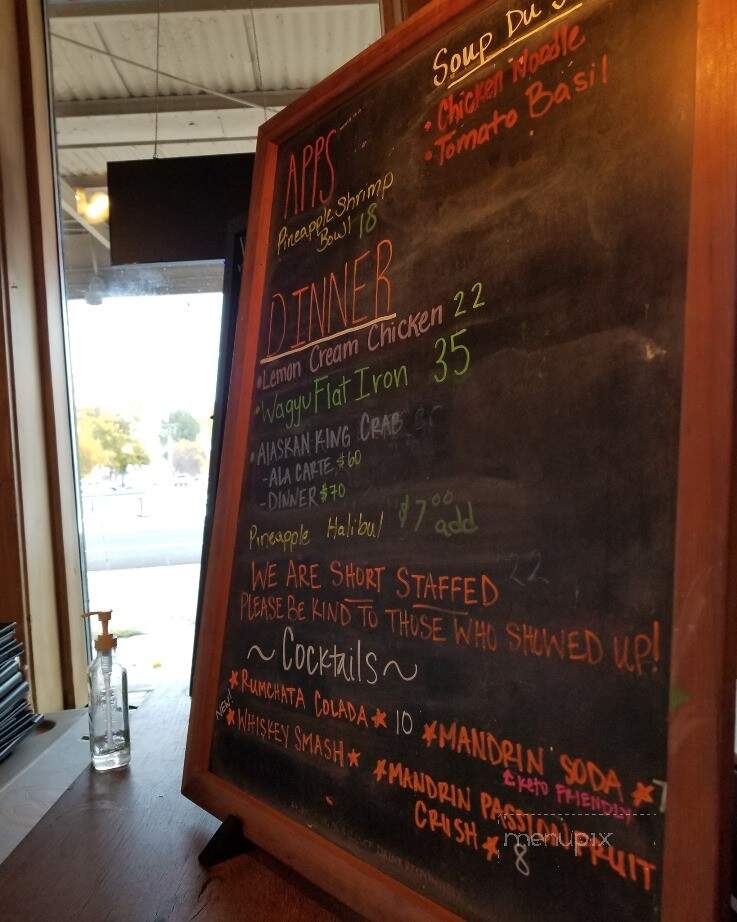 Soup Du
• Chicken Noodle
• Tomato Basil
APPS
Pineapple Shrimp
Bowl 18
DINNER
• Lemon Cream Chicken 22
• Wagyu Flat Iron 35
• ALASKAN KING CRAB
- ALA CARTE $60
- DINNER $70
Pineapple Halibut $7.00
add
WE ARE SHORT STAFFED
PLEASE BE KIND TO THOSE WHO SHOWED UP!
~ Cocktails ~
★ RUMCHATA COLADA ★ 10
NEW!
★ WHISKEY SMASH ★
★ MANDRIN SODA ★ 7
KETO FRIENDLY
★ MANDRIN PASSION FRUIT
CRUSH ★ 8
menupix